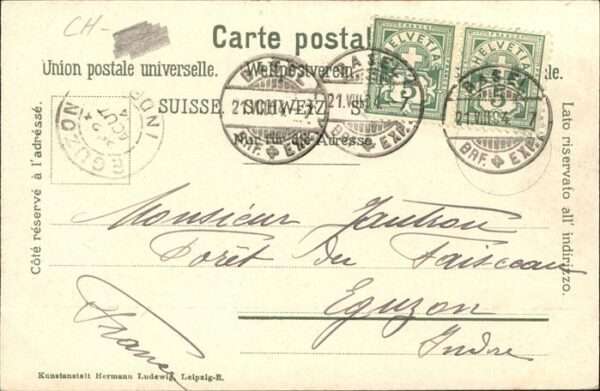 CH-
Carte postale
HELVETIA HELVETIA
5 5
Union postale universelle. Weltpostverein.
SUISSE. SCHWEIZ.
Nur für die Adresse.
BASEL
21.VIII.
BRF. EXP.
BASEL
21.VIII.
BRF. EXP.
BASEL
21.VIII.
BRF. EXP.
EGUZON
AOUT
INDRE
Côté réservé à l'adresse.
Lato riservato all' indirizzo.
Monsieur
Forêt du Faisceau
Eguzon
Indre
France
Kunstanstalt Hermann Ludewig, Leipzig-R.